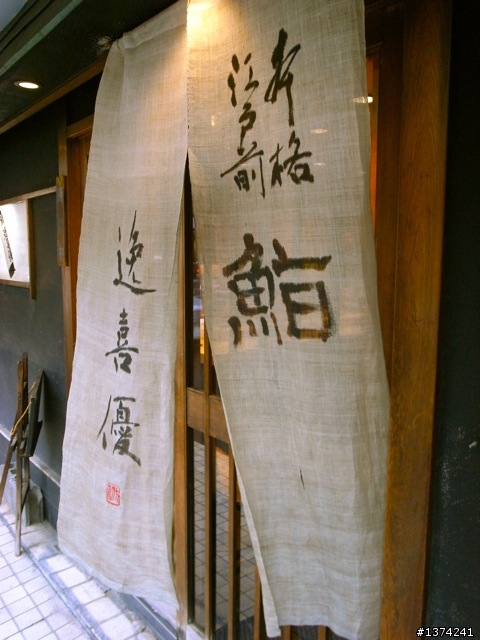 本格
江戸前
鮨
逸喜優
#1374241